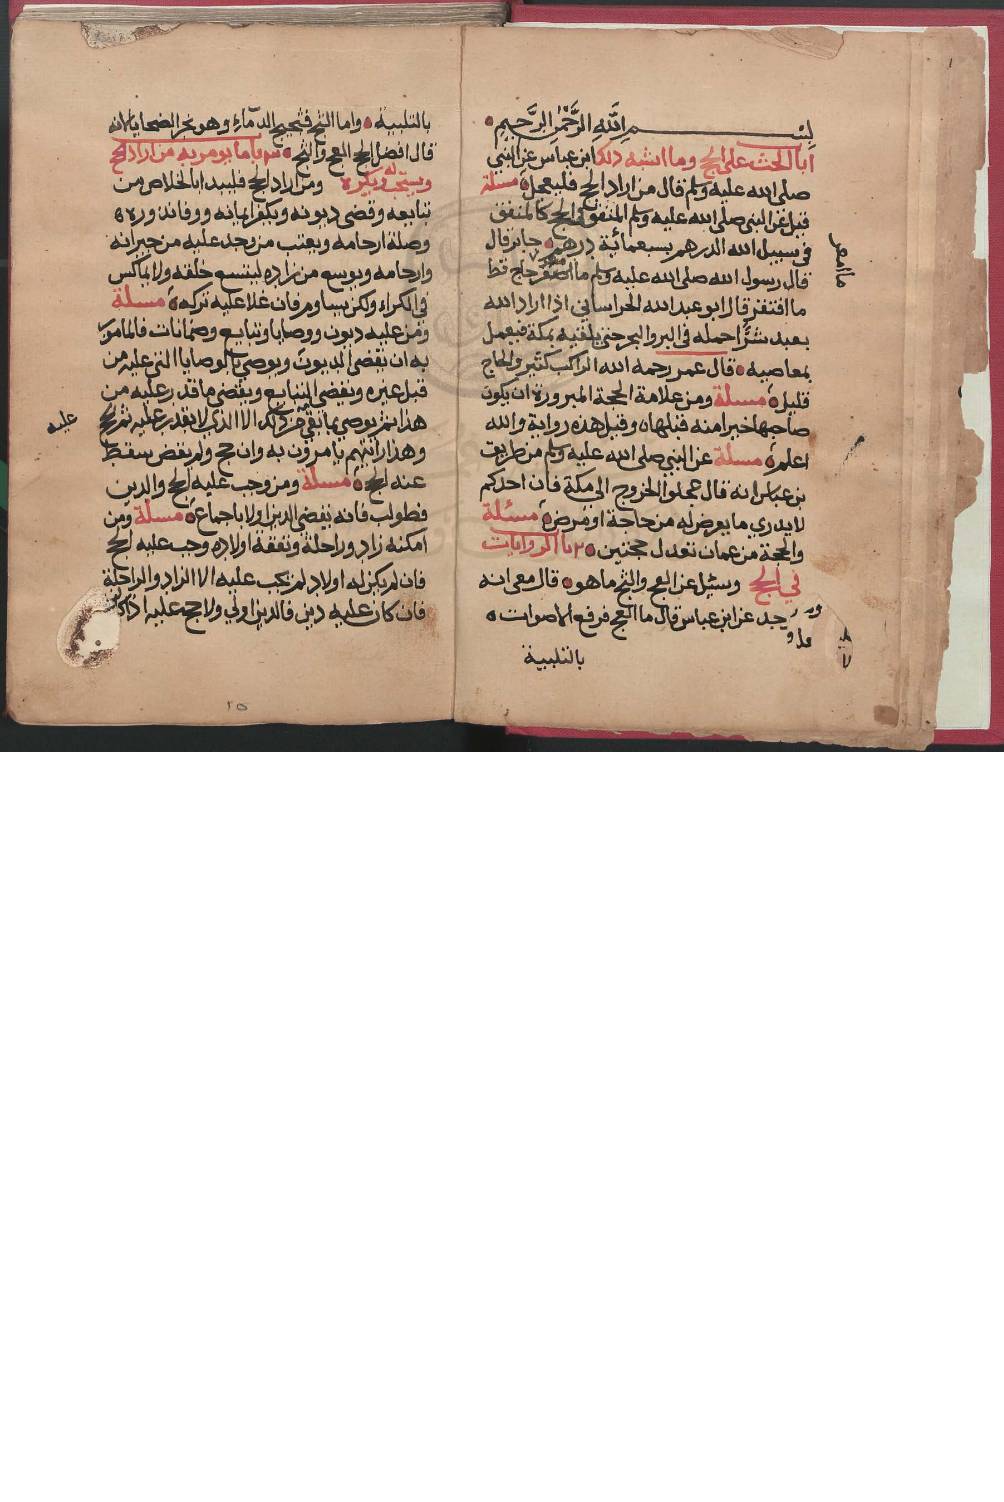 بسم الله الرحمن الرحيم
ابا الحث على الحج وما اشبه ذلك ابن عباس عن النبي
صلى الله عليه وسلم قال من اراد الحج فليعجل مسلة
قيل عن النبي صلى الله عليه وسلم المنفق في الحج كالمنفق
في سبيل الله الدرهم بسبعمائة درهم جابر قال
قال رسول الله صلى الله عليه وسلم ما امعر حاج قط
ما افتقر قال ابو عبد الله الخراساني اذا اراد الله
بعبد شرا حمله في البر والبحر حتى يلقيه بمكة فيعمل
بمعاصيه قال عمر رحمه الله الراكب كثير والحاج
قليل مسلة ومن علامة الحجة المبرورة ان يكون
صاحبها خيرا منه قبلها وقيل هذه رواية والله
اعلم مسلة عن النبي صلى الله عليه وسلم من طريق
بن عباس انه قال عجلوا الخروج الى مكة فان احدكم
لا يدري ما يعرض له من حاجة او مرض مسئلة
والحجة من عمان تعدل حجتين ٢ باا الروايات
في الحج وسئل عن العج والثج ما هو قال معي انه
وجد عن ابن عباس قال ما العج فرفع الاصوات
بالتلبية
بالتلبية واما الثج فتجيج الدماء وهو نحر الضحايا لانه
قال افضل الحج العج والثج ٣ باا ما يومر به من اراد الحج
ويستحب له ويكره ومن اراد الحج فليبدا بالخلاص من
تبايعه وقضى ديونه ويكفر ايمانه ووفا نذوره
وصلة ارحامه ويعتب من يجد عليه من جيرانه
وارحامه ويوسع من زاده ليتسع خلقه ولا يماكس
في الكراء ولكن يساوم فان غلا عليه تركه مسلة
ومن عليه ديون ووصايا وتبايع وضمانات فالمامور
به ان يقضي الديون ويوصي بالوصايا التي عليه من
قبل غيره ويقضي التبايع ويقضي ما قدر عليه من
هذا ثم يوصي بما بقي من ذلك الا الذي لا يقدر عليه ثم يحج
عليه
وهذا رايتهم يامرون به وان حج ولم يقض سقط
عنه الحج مسلة ومن وجب عليه الحج والدين
فطولب فانه يقضي الدين اولا باجماع مسلة ومن
امكنه زاد وراحلة ونفقة اولاده وجب عليه الحج
فان لم يكن له اولاد لم يجب عليه الا الزاد والراحلة
فان كان عليه دين فالدين اولى ولا حج عليه اذا كان